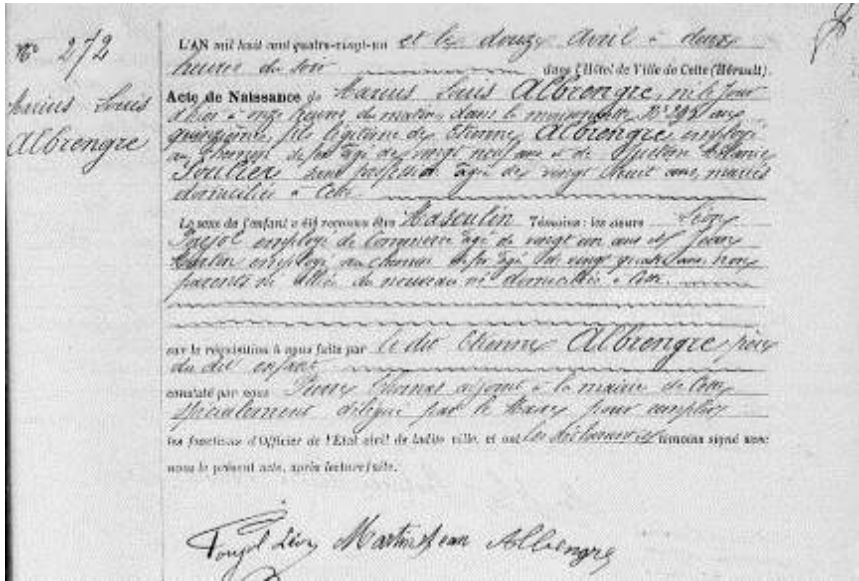 N° 272
Marius Louis
Albrengre
L'AN mil huit cent quatre-vingt-un et le douze Avril à deux
heures du soir dans l'Hôtel de Ville de Cette (Hérault).
Acte de Naissance de Marius Louis Albrengre, né le jour
d'hier à onze heures du matin, dans le N° 292
fils légitime de Etienne Albrengre employé
au chemin de fer âgé de vingt neuf ans et de Mélanie
Soulier sans profession âgée de vingt huit ans, mariés
domiciliés à Cette.
Le sexe de l'enfant a été reconnu être Masculin Témoins : les sieurs Léon
Poujol employé de Commerce âgé de vingt un ans et Jean
Martin employé au chemin de fer âgé de vingt quatre ans, non
parents ni alliés du nouveau né domiciliés à Cette.
sur la réquisition à nous faite par le dit Etienne Albrengre père
du dit enfant
constaté par nous Pierre Thomas adjoint à la mairie de Cette
spécialement délégué par le Maire pour remplir
les fonctions d'Officier de l'État civil de ladite ville, et ont les déclarant et témoins signé avec
nous le présent acte, après lecture faite.
Poujol Léon Martin Jean Albrengre